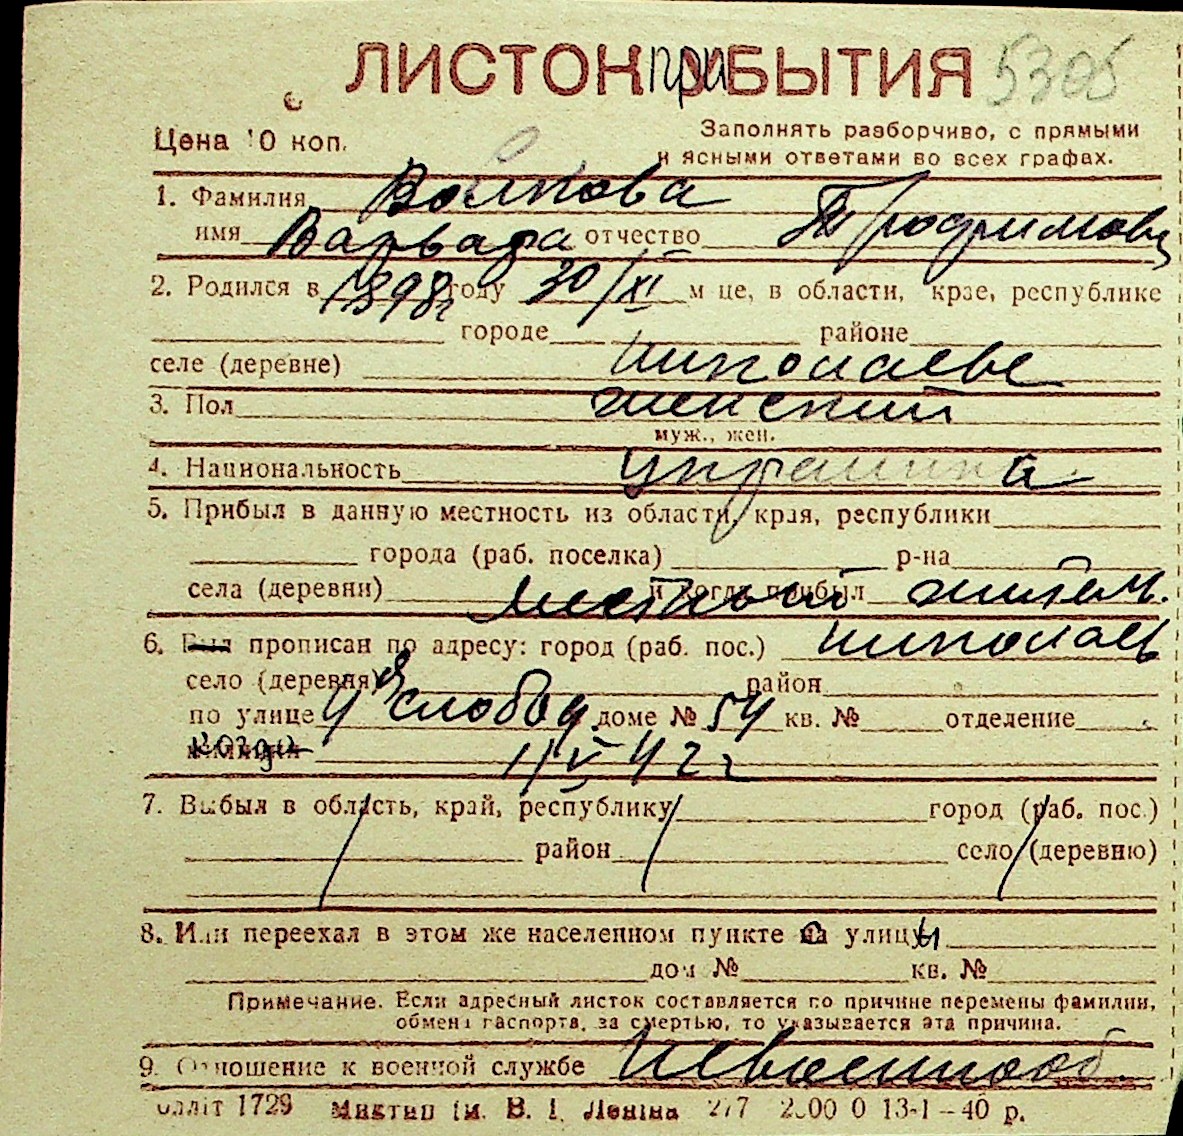 ЛИСТОК прибытия 5305
Цена 10 коп.
Заполнять разборчиво, с прямыми
и ясными ответами во всех графах.
1. Фамилия Волкова
имя Варвара отчество Трофимовн
2. Родился в 1898 г году 30/XI м це, в области, крае, республике
городе районе
селе (деревне) Николаеве
3. Пол женский
муж., жен.
4. Национальность украинка
5. Прибыл в данную местность из области, края, республики
города (раб. поселка) р-на
села (деревни) и когда прибыл местный житель.
6. Был прописан по адресу: город (раб. пос.) Николаев
село (деревня) район
по улице 4 Я слобод доме № 54 кв. № отделение
когда 1/V 42 г
7. Выбыл в область, край, республику город (раб. пос.)
район село (деревню)
8. Или переехал в этом же населенном пункте са улицы
дом № кв. №
Примечание. Если адресный листок составляется по причине перемены фамилии,
обмена паспорта, за смертью, то указывается эта причина.
9. Отношение к военной службе Невоеннооб.
1729 ім. В. І. Леніна 277 2000 0 13-I-40 р.